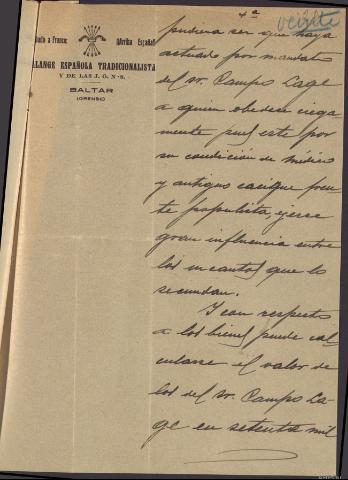 4ª
veinte
Saludo a Franco:
¡Arriba España!
FALANGE ESPAÑOLA TRADICIONALISTA
Y DE LAS J. O. N-S.
BALTAR
(ORENSE)
pudiera ser que haya
actuado por mandato
del sr. Campo Lage
a quien obedece ciega-
mente pues este por
su condición de médico
y antiguo cacique fren-
te populista, ejerce
gran influencia entre
los incautos que lo
secundan.
Y con respecto
a los bienes puede cal-
cularse el valor de
los del sr. Campo La-
ge en setenta mil